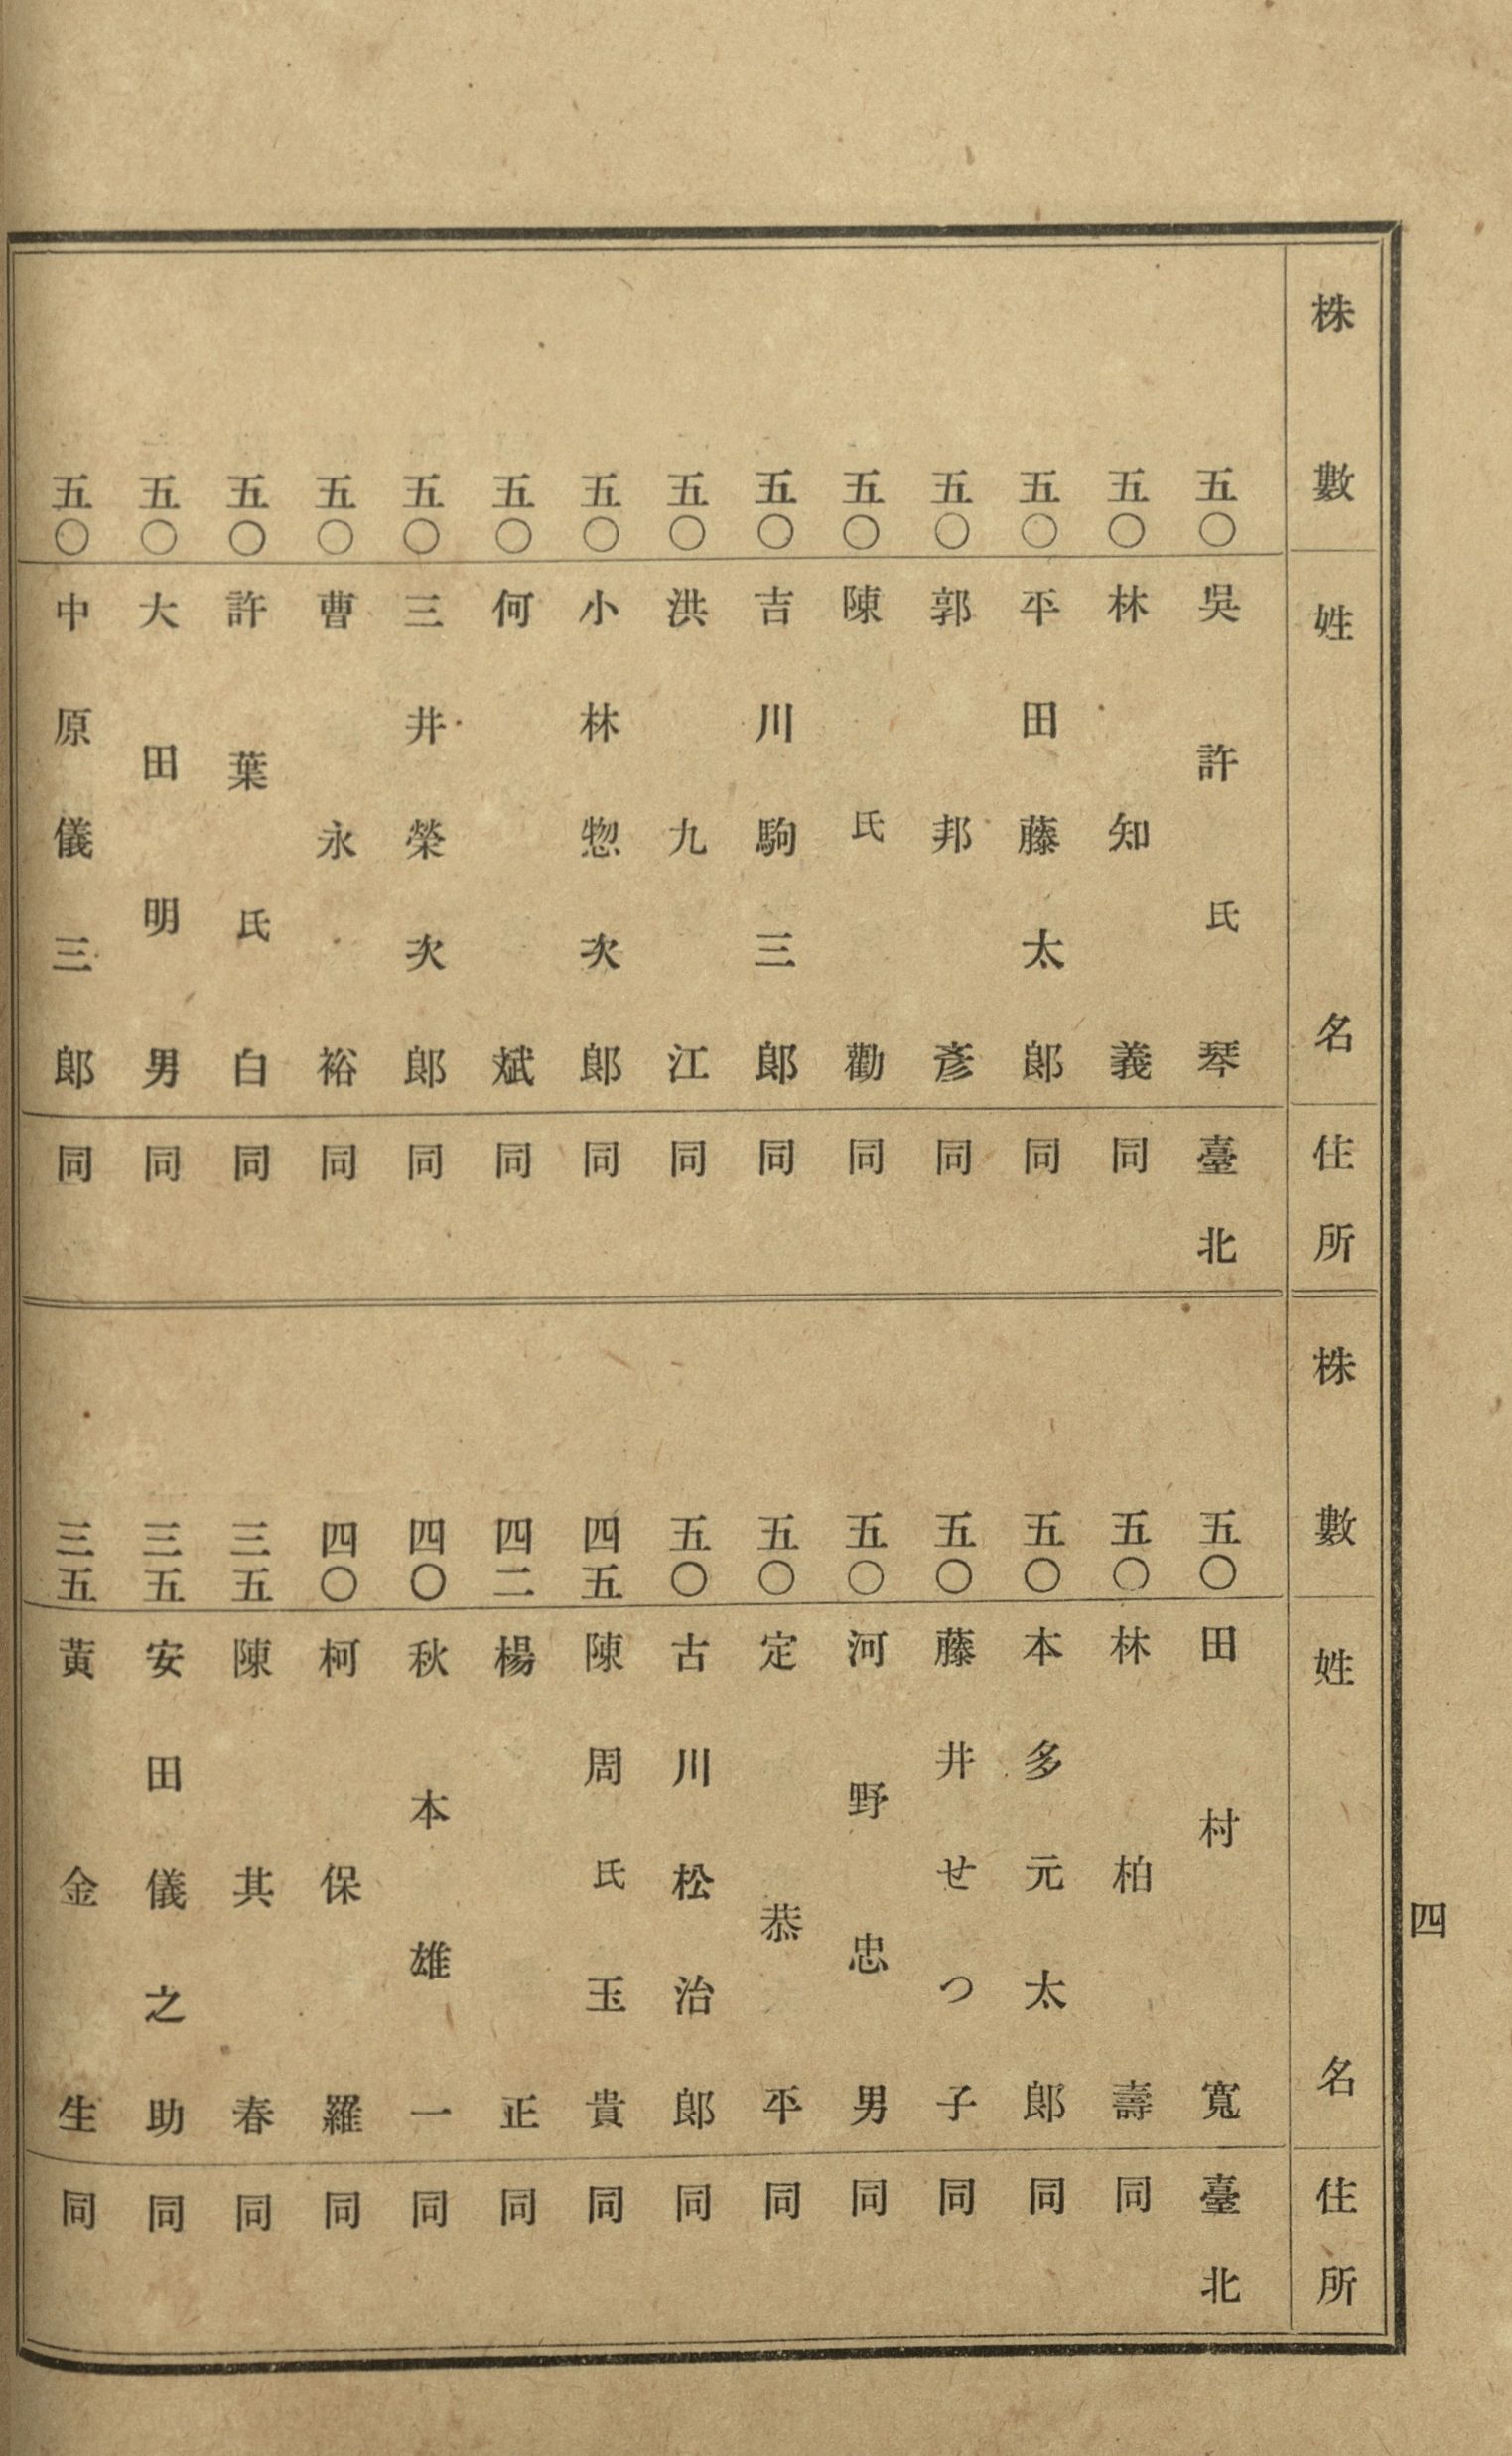 株數 姓名 住所
五〇 吳許氏琴 臺北
五〇 林知義 同
五〇 平田藤太郎 同
五〇 郭邦彥 同
五〇 陳氏勸 同
五〇 吉川駒三郎 同
五〇 洪九江 同
五〇 小林惣次郎 同
五〇 何斌 同
五〇 三井榮次郎 同
五〇 曹永裕 同
五〇 許葉氏白 同
五〇 大田明男 同
五〇 中原儀三郎 同
株數 姓名 住所
五〇 田村寬 臺北
五〇 林柏壽 同
五〇 本多元太郎 同
五〇 藤井せつ子 同
五〇 河野忠男 同
五〇 定恭平 同
五〇 古川松治郎 同
四五 陳周氏玉貴 同
四二 楊正 同
四〇 秋本雄一 同
四〇 柯保羅 同
三五 陳其春 同
三五 安田儀之助 同
三五 黃金生 同
四